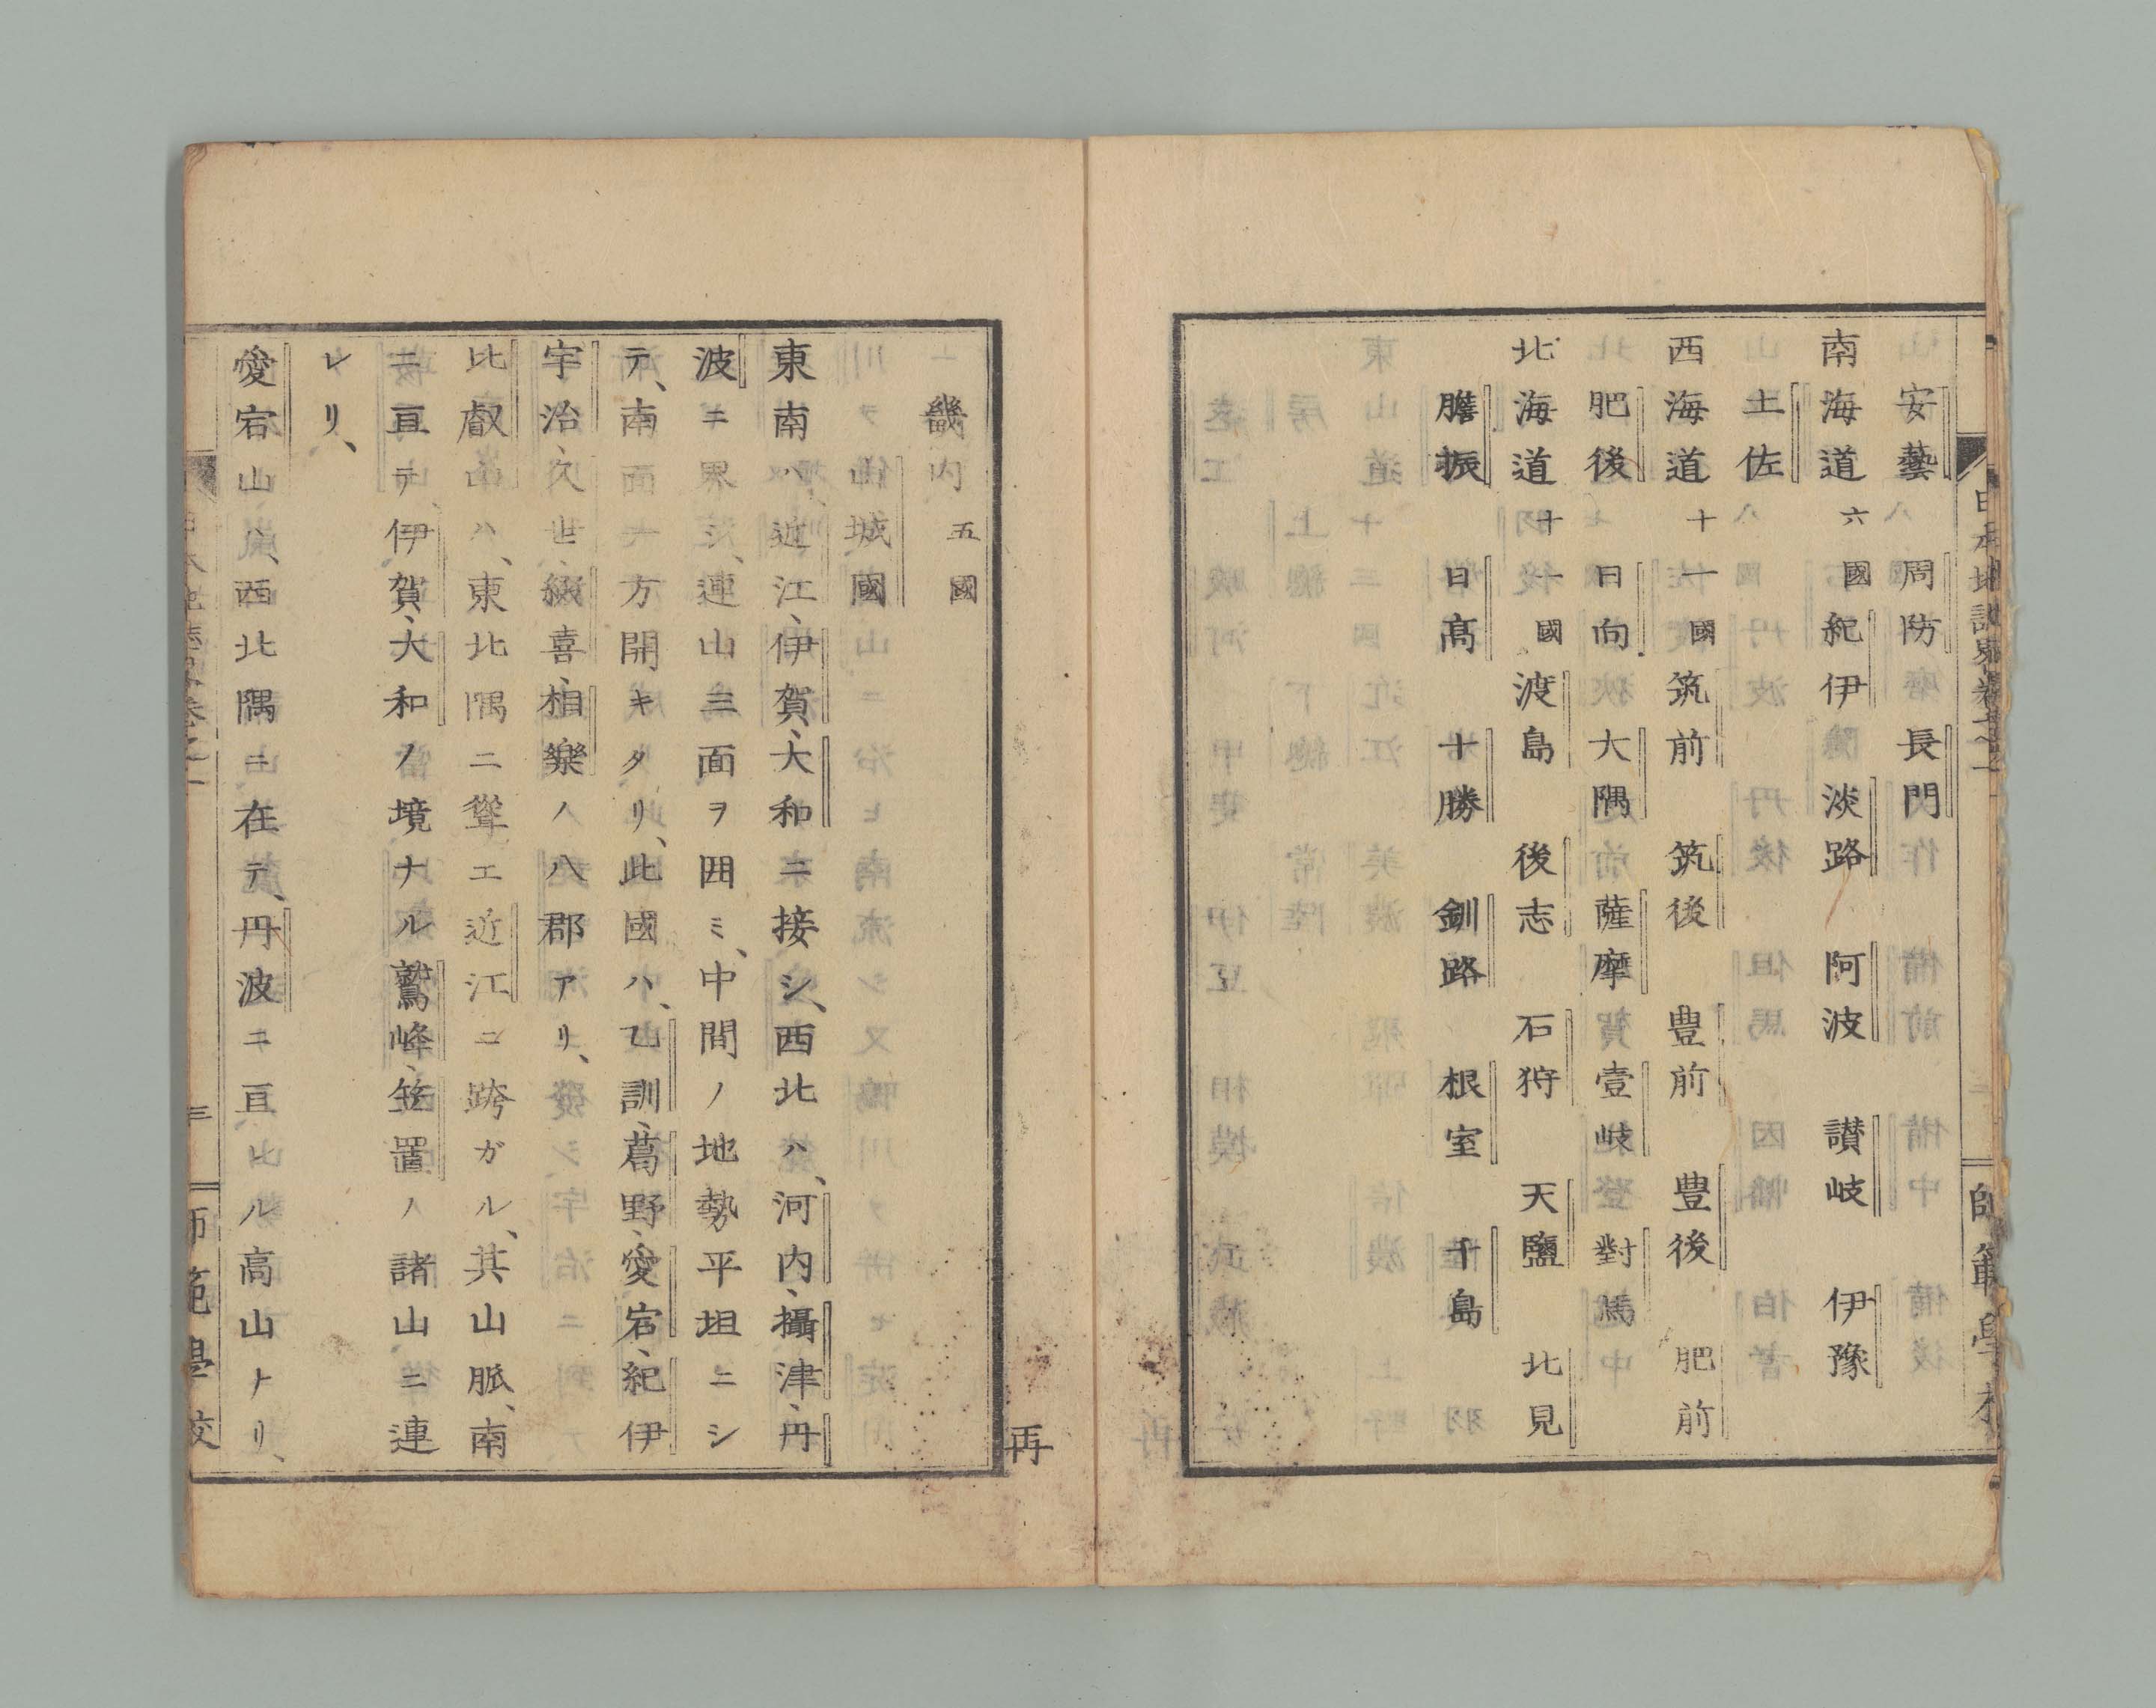 安藝 周防 長門
南海道 六國 紀伊 淡路 阿波 讃岐 伊豫
土佐
西海道 十一國 筑前 筑後 豊前 豊後 肥前
肥後 日向 大隅 薩摩 壹岐 對馬
北海道 十一國 渡島 後志 石狩 天鹽 北見
膽振 日高 十勝 釧路 根室 千島
畿内 五國
山城國
東南ハ、近江、伊賀、大和ニ接シ、西北ハ、河内、攝津、丹
波ニ界シ、連山三面ヲ囲ミ、中間ノ地勢平坦ニシ
テ、南面一方開キタリ、此國ハ、乙訓、葛野、愛宕、紀伊
宇治、久世、綴喜、相樂ノ八郡アリ、
比叡山ハ、東北隅ニ聳エ近江ニ跨ガル、其山脈、南
ニ亘テ、伊賀、大和ノ境ナル鷲峰、笠置ノ諸山ニ連
レリ、
愛宕山ハ、西北隅ニ在テ、丹波ニ亘ル高山ナリ、
三
師範學校
再